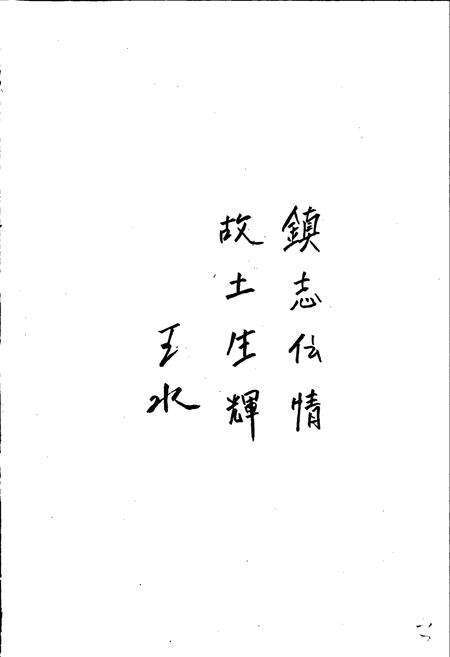 鎮志伝情
故土生輝
王水